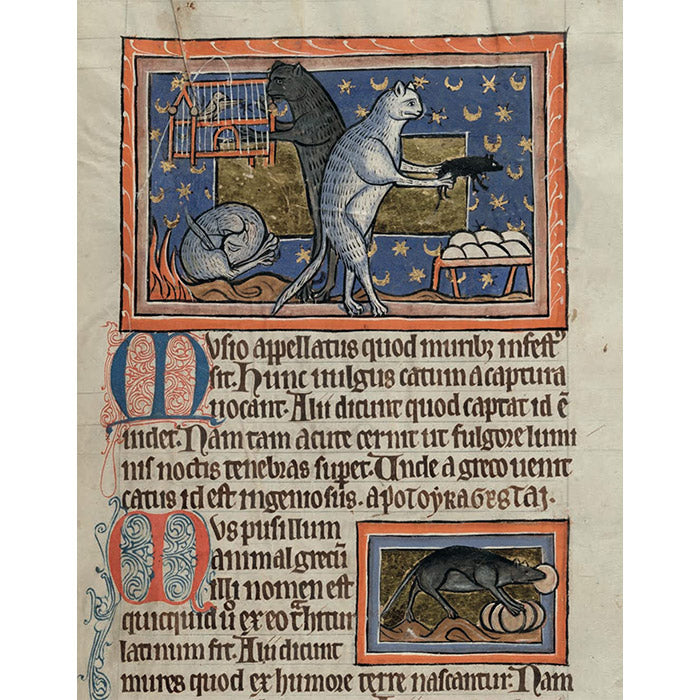 Musio appellatus quod muribꝫ infestꝰ
sit. Hunc uulgus catum a captura
uocant. Alii dicunt quod captat id ē
uidet. Nam tam acute cernit ut fulgore lumi
nis noctis tenebras supet. Unde a greco uenit
catus id est ingeniosus. ΑΠΟΤΟΥΚΑΓΕSΤΑΙ.
Mus pusillum
animal grecū
illi nomen est
quicquid ů ex eo trhitur
latinum fit. Alii dicunt
mures quod ex humore terre nascantur. Nam